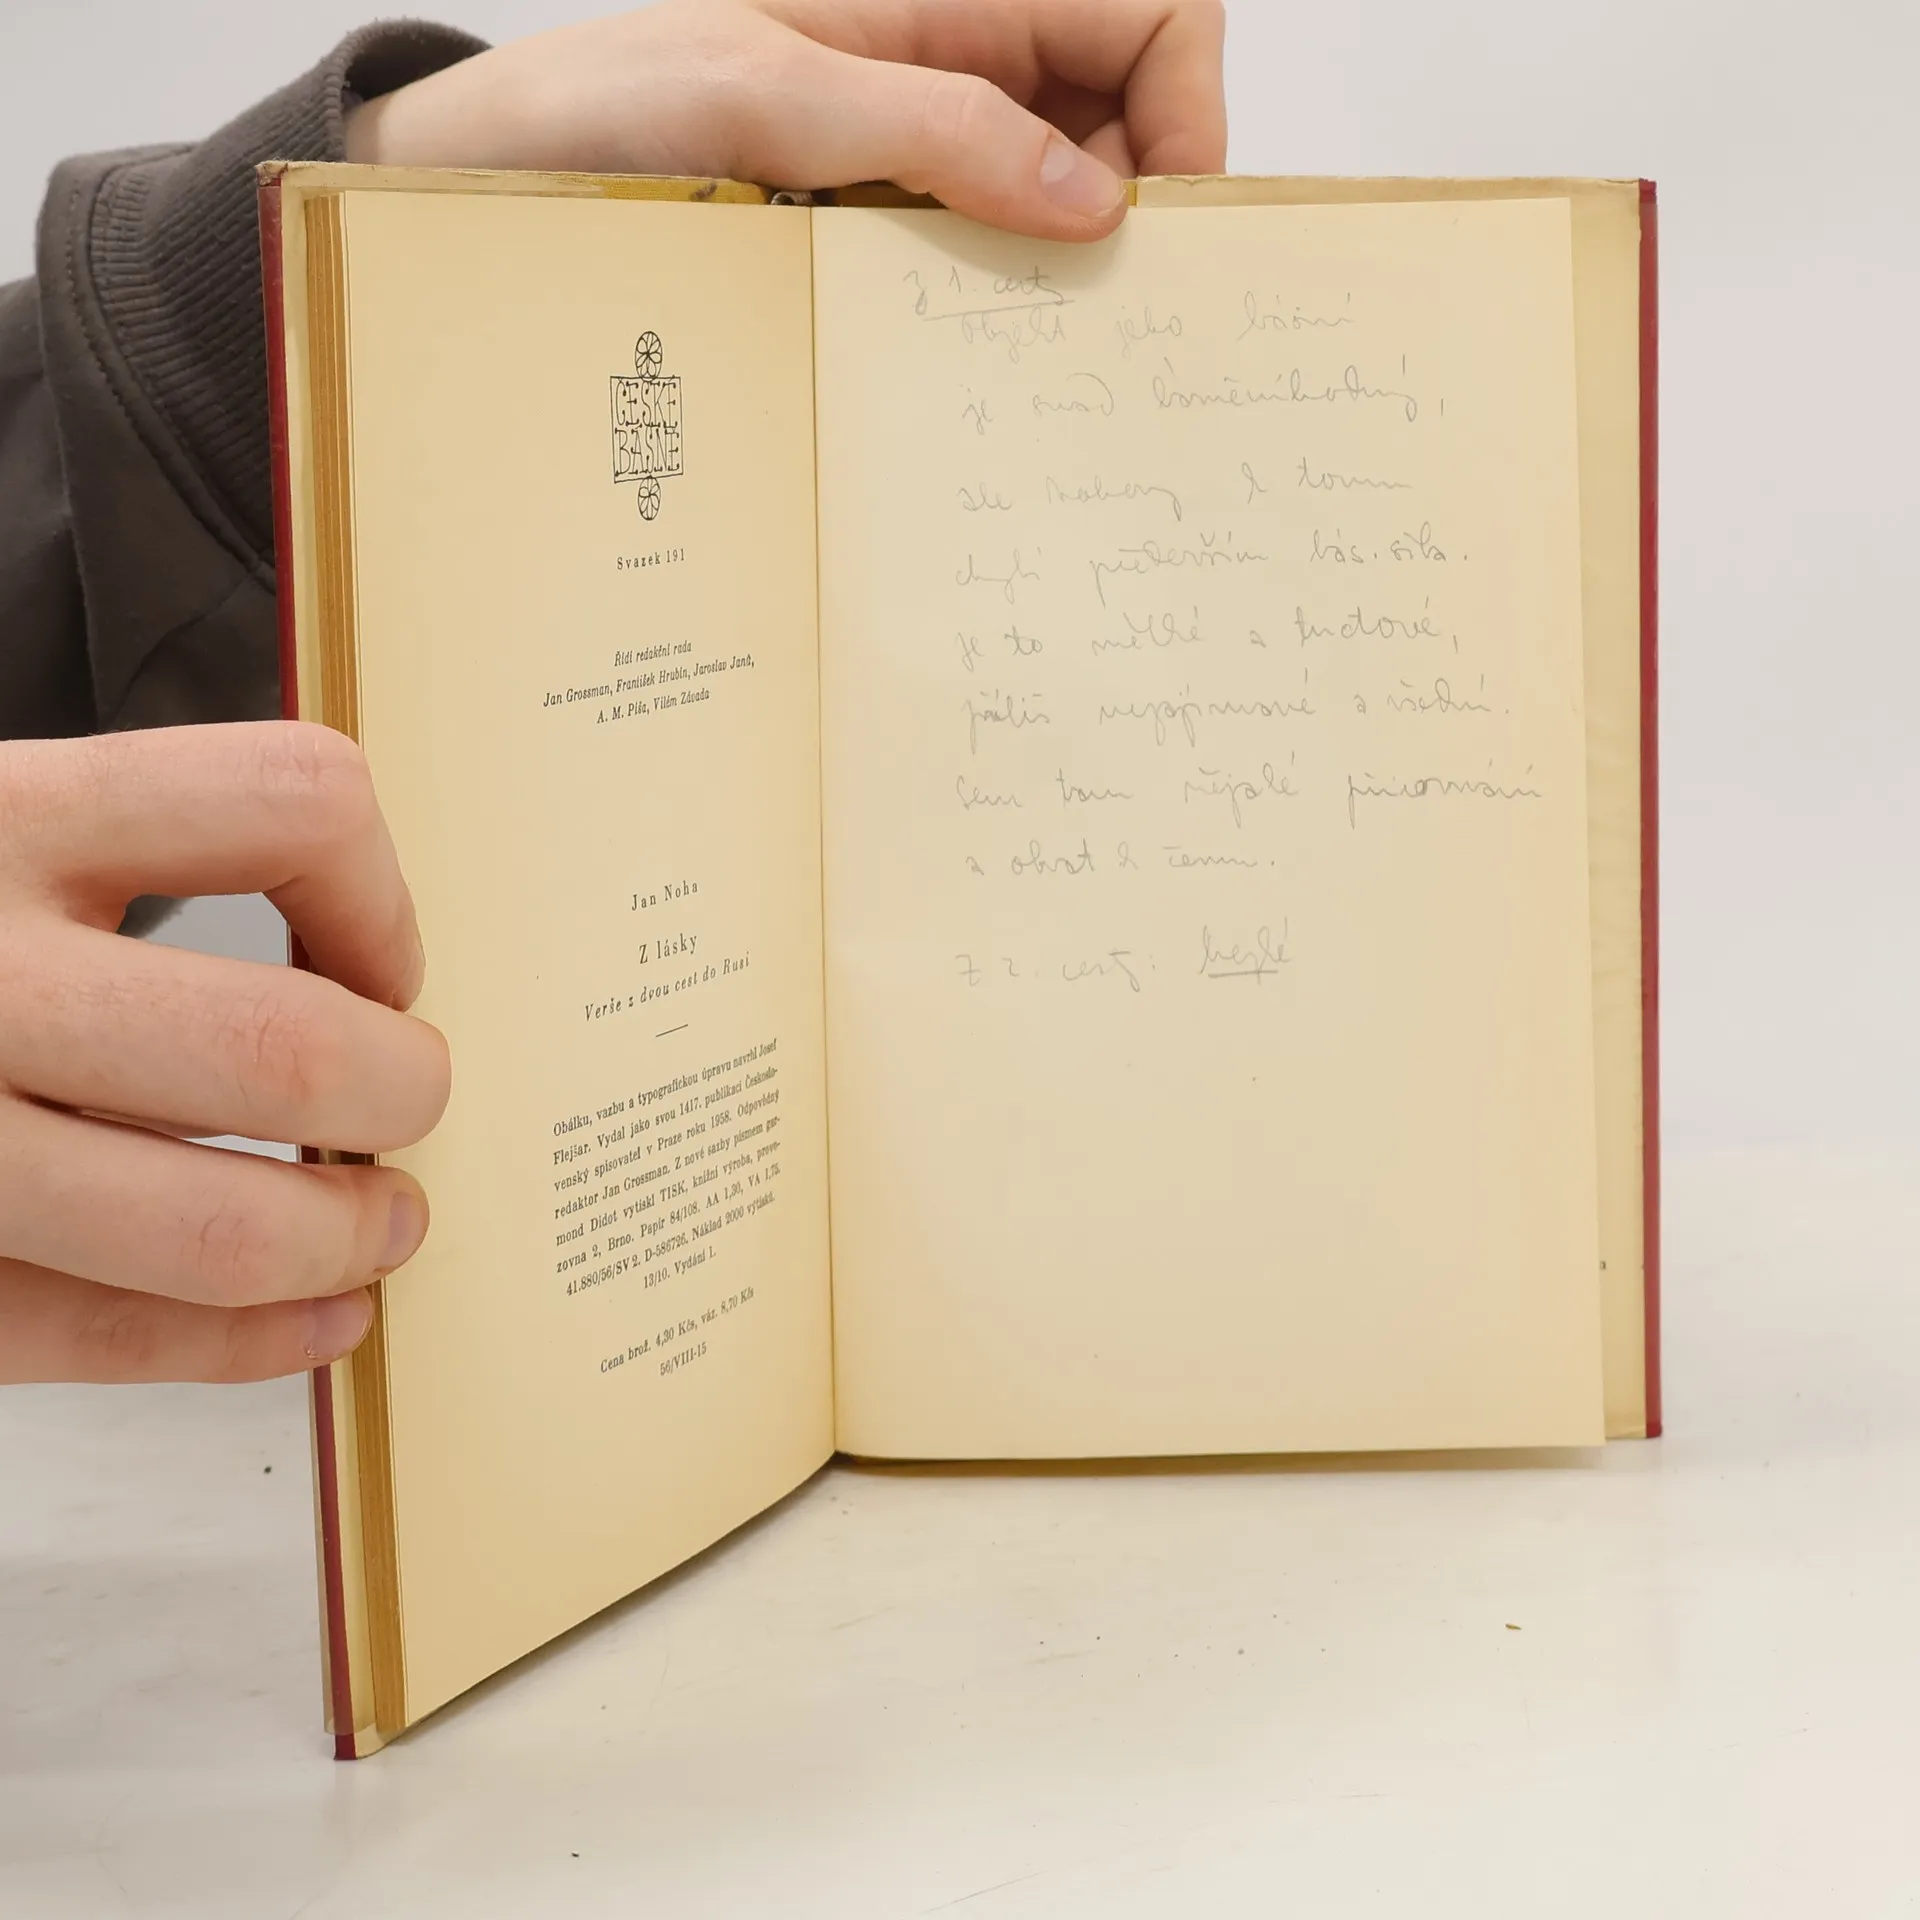 ČESKÉ
BÁSNĚ
Svazek 191
Řídí redakční rada
Jan Grossman, František Hrubín, Jaroslav Janů,
A. M. Píša, Vilém Závada
Jan Noha
Z lásky
Verše z dvou cest do Rusi
Obálku, vazbu a typografickou úpravu navrhl Josef
Flejšar. Vydal jako svou 1417. publikaci Českoslo-
venský spisovatel v Praze roku 1958. Odpovědný
redaktor Jan Grossman. Z nové sazby písmem gar-
mond Didot vytiskl TISK, knižní výroba, provo-
zovna 2, Brno. Papír 84/108. AA 1,30, VA 1,75.
41.880/56/SV 2. D-586726. Náklad 2000 výtisků.
13/10. Vydání I.
Cena brož. 4,30 Kčs, váz. 8,70 Kčs
56/VIII-15
Z 1. cesty
Objekt jeho básní
je snad básněníhodný,
ale k tomu
chybí především bás. síla.
je to mělké a tuctové,
příliš nepříznakové a všední.
Sem tam nějaké přirovnání
a obrat k čemu.
Z 2. cesty: hezké